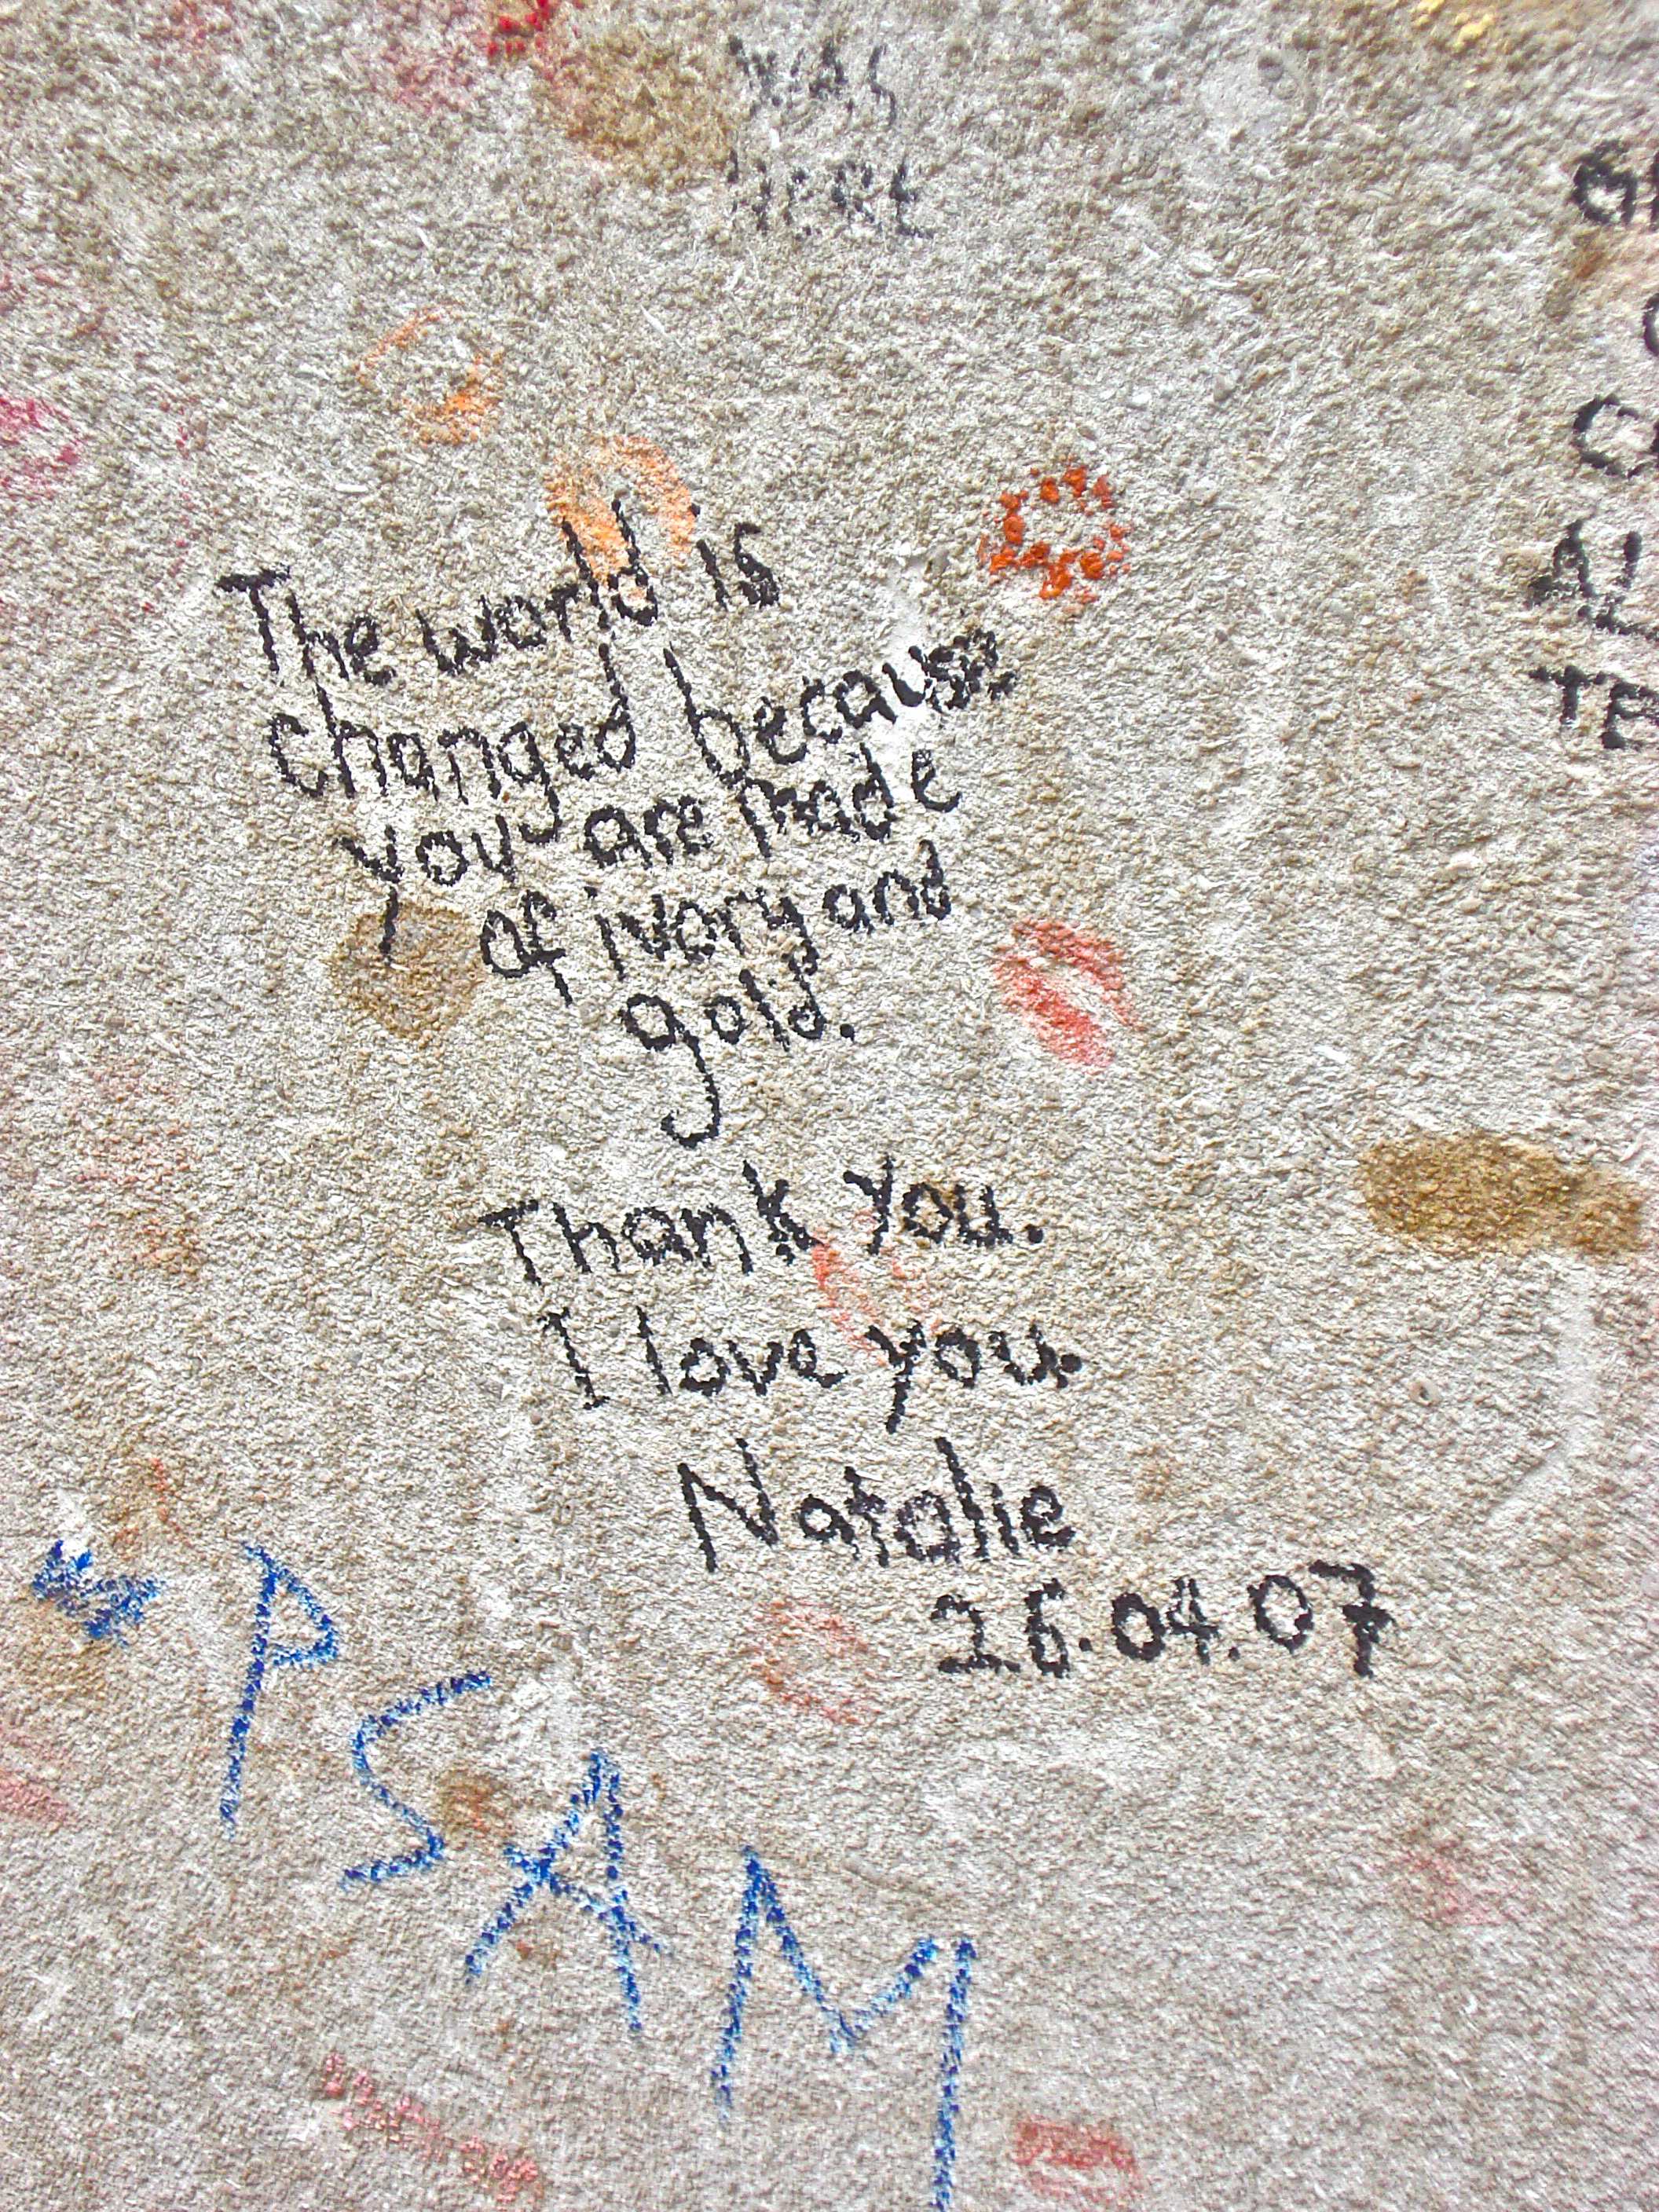 WAS
HERE
The world is
changed because
you are made
of ivory and
gold.
Thank You.
I love you.
Natalie
26.04.07
PSAM